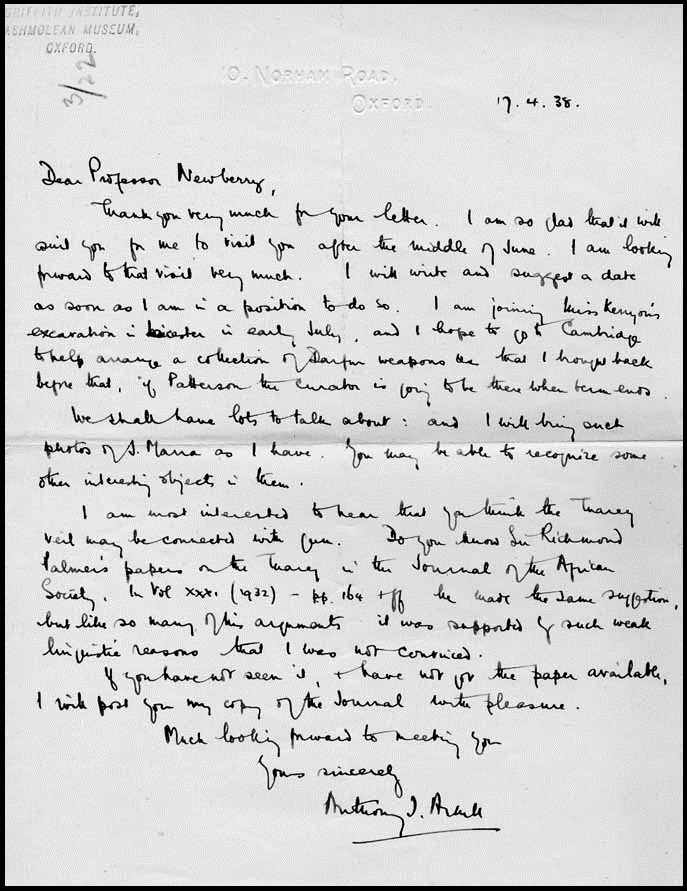 GRIFFITH INSTITUTE,
ASHMOLEAN MUSEUM,
OXFORD.
3/22
10. NORHAM ROAD.
OXFORD.
17. 4. 38.
Dear Professor Newberry,
Thank you very much for your letter. I am so glad that it will
suit you for me to visit you after the middle of June. I am looking
forward to that visit very much. I will write and suggest a date
as soon as I am in a position to do so. I am joining Miss Kenyon's
excavation in Leicester in early July, and I hope to go to Cambridge
to help arrange a collection of Darfur weapons that I brought back
before that, if Patterson the curator is going to be there when term ends.
We shall have lots to talk about: and I will bring such
photos of J. Marra as I have. You may be able to recognize some
other interesting objects in them.
I am most interested to hear that you think the Tuareg
veil may be connected with . Do you know Sir Richmond
Palmer's papers on the Tuareg in the Journal of the African
Society. In Vol XXXI (1932) - pp. 164 + ff he made the same suggestion,
but like so many of his arguments it was supported by such weak
linguistic reasons that I was not convinced.
If you have not seen it, + have not got the paper available,
I will post you my copy of the Journal with pleasure.
Much looking forward to meeting you
Yours sincerely
Anthony J. Arkell